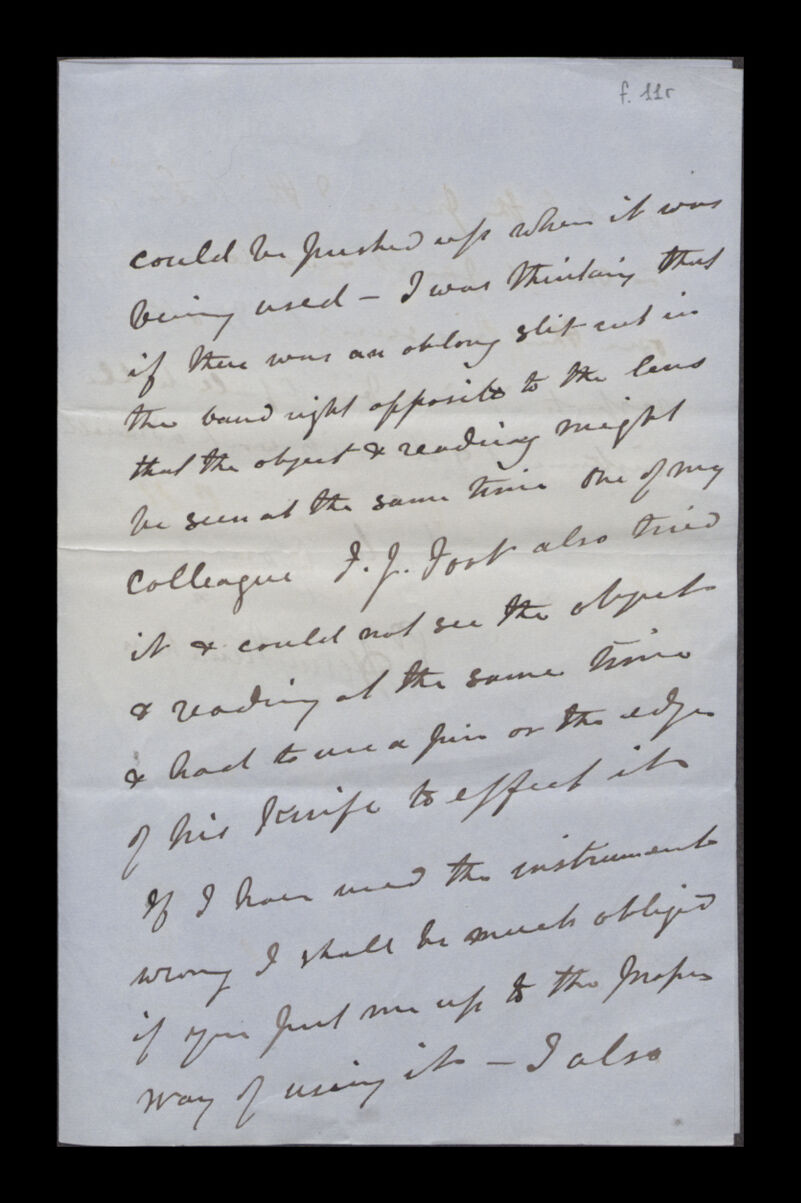 f. 11r
could be pushed up when it was
being used – I was thinking that
if there was an oblong slit cut in
the band right opposite to the lens
that the object & reading might
be seen at the same time One of my
colleague J. J. also tried
it & could not see the object
& reading at the same time
& had to use a pin or the edge
of his knife to effect it
If I have used the instrument
wrong I shall be much obliged
if you put me up to the proper
way of using it – I also